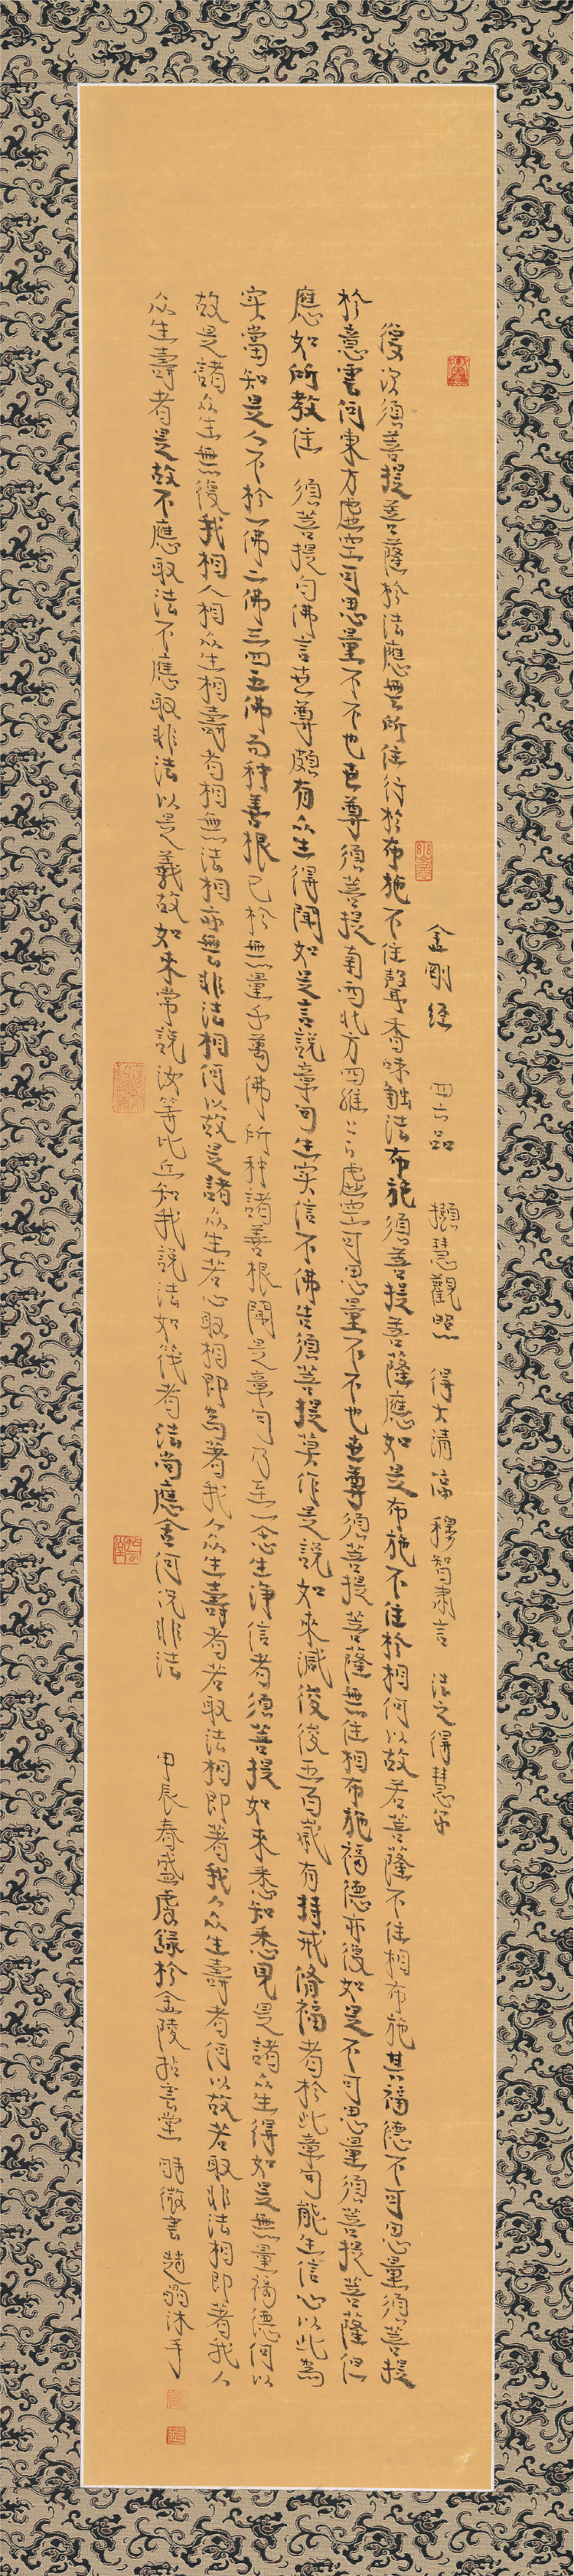 金剛經 四六品 擷慧觀照 得大清涼 釋智肅言 法之得慧乎
復次須菩提菩薩於法應無所住行於布施不住聲香味觸法布施須菩提菩薩應如是布施不住於相何以故若菩薩不住相布施其福德不可思量須菩提
於意云何東方虛空可思量不不也世尊須菩提南西北方四維上下虛空可思量不不也世尊須菩提菩薩無住相布施福德亦復如是不可思量須菩提菩薩但
應如所教住 須菩提白佛言世尊頗有众生得聞如是言說章句生实信不佛告須菩提莫作是說如來滅後後五百歲有持戒脩福者於此章句能生信心以此為
实當知是人不於一佛二佛三四五佛而种善根已於無量千萬佛所种諸善根聞是章句乃至一念生淨信者須菩提如來悉知悉見是諸众生得如是無量福德何以
故是諸众生無復我相人相众生相壽者相無法相亦無非法相何以故是諸众生若心取相即為著我人众生壽者若取法相即著我人众生壽者何以故若取非法相即著我人
众生壽者是故不應取法不應取非法以是義故如来常說汝等比丘知我說法如筏者法尚應舍何況非法 甲辰春盛虔錄於金陵 書 趙翮沐手